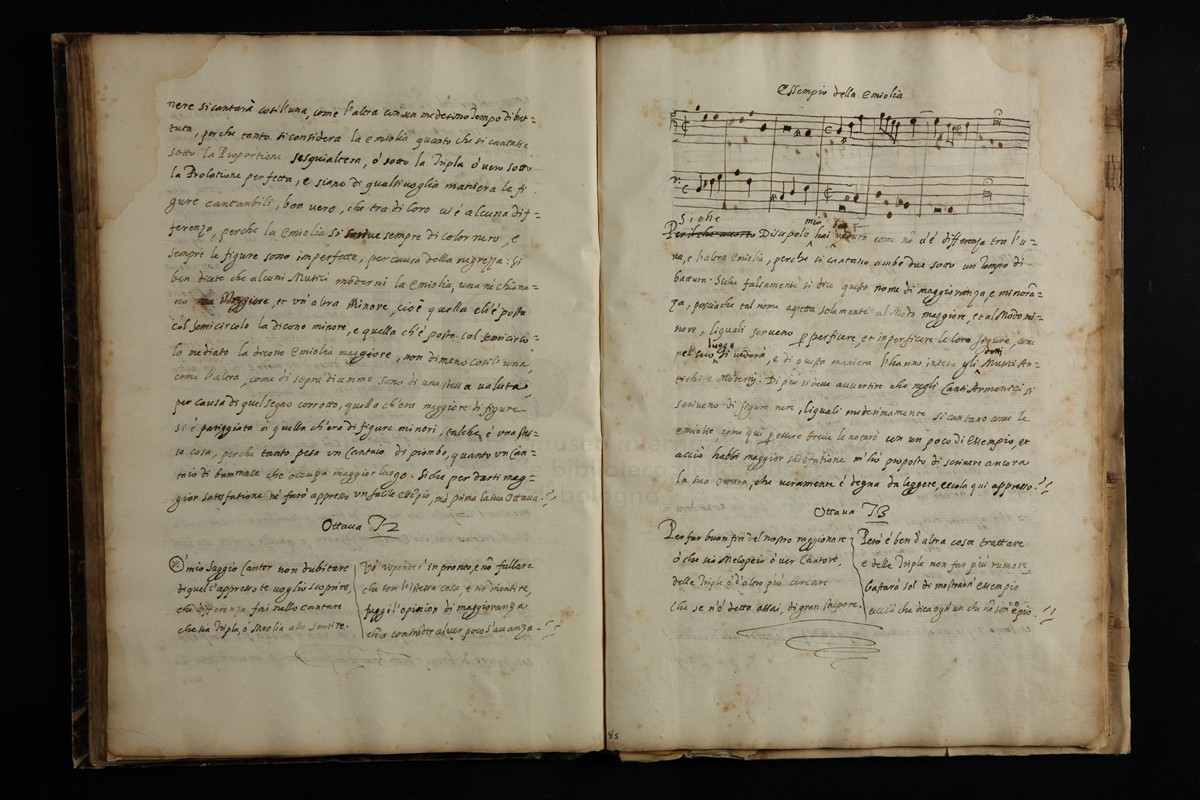 nere si cantarà così l'una, come l'altra con un medesimo tempo di bat=
tuta, perche tanto si considera la emiolia quanto che si cantasse
sotto la Proportione sesquialtera, ò sotto la Tripla ò vero sotto
la Prolatione perfetta, e siano di qualsivoglia maniera le fi
gure cantanbili, ben vero, che tra di loro vi è alcuna dif=
ferenza, perche la emiolia si scrive sempre di color nero, e
sempre le figure sono imperfette, per causa della negrezza: Si
ben dicete che alcuni Musici moderni la emiolia, una ne chiama=
no Maggiore, et un'altra Minore, cioè quella ch'è posta
col semicircolo la dicono minore, e quella ch'è posta col semicirco=
lo mediato la dicono emiolia maggiore, non dimeno così l'una
come l'altra, come di sopra dicemmo sono di una stessa valuta
per causa di quel segno corrotto, quella ch'era maggiore di figure
si è pariggiata à quella ch'era di figure minori, talche è una stes=
sa cosa, perche tanto pesa un Cantaio di piombo, quanto un Can=
taio di bammace che occupa maggior luogo. Si che per darti mag=
gior satisfatione ne farò appresso un facile esempio, mà prima la sua Ottava.
Ottava 72
O mio saggio Cantor non dubitare
di quel ch'appresso te voglio scoprire,
che differenza fai nello cantare
che sia Tripla, ò Meolia allo sentire.
Và risponder in pronto, e nò fallare
che son l'istessa cosa e nò mentire,
fuggi l'opinion di maggioranza
che à contradir al ver poco s'avanza.
Essempio della Emiolia
Siche mio
Discepolo hai veduto come nò v'è differenza tra l'u=
na, e l'altra emiolia, perche si cantano ambe due sotto un Tempo di
battuta. Siche falsamente si dice questo nome di maggioranza, e minoran=
za, posciache tal nome aspetta solamente al Modo maggiore, et al Modo mi=
nore, liquali serveno p perficere, et imperficere le loro figure, come
nel suo luogo si vederà, e di questa maniera l'hanno inteso gli dotti Musici An=
tichi, e Moderni. Di più si deve avvertire che negli Canti Armonici si
scriveno di figure nere, liquali medesimamente si cantano come le
emiolie, come qui p essere breve le notarò con un poco di Essempio, et
acciò habbi maggior sadisfatione m'hò proposto di scrivere ancora
la sua Ottava, che veramente è degna da leggere, eccola qui appresso.
Ottava 73
Per far buon fin del nostro raggionare
ò che sia Melopeio ò ver Cantore,
delle Triple ò d'altro più cercare
che se n'è detto assai, di gran stupore.
Però è ben d'altra cosa trattare
e delle Triple non far più rumore,
bastarà sol di mostrarti essempio
acciò che dica ogn'un che nò son empio.
85